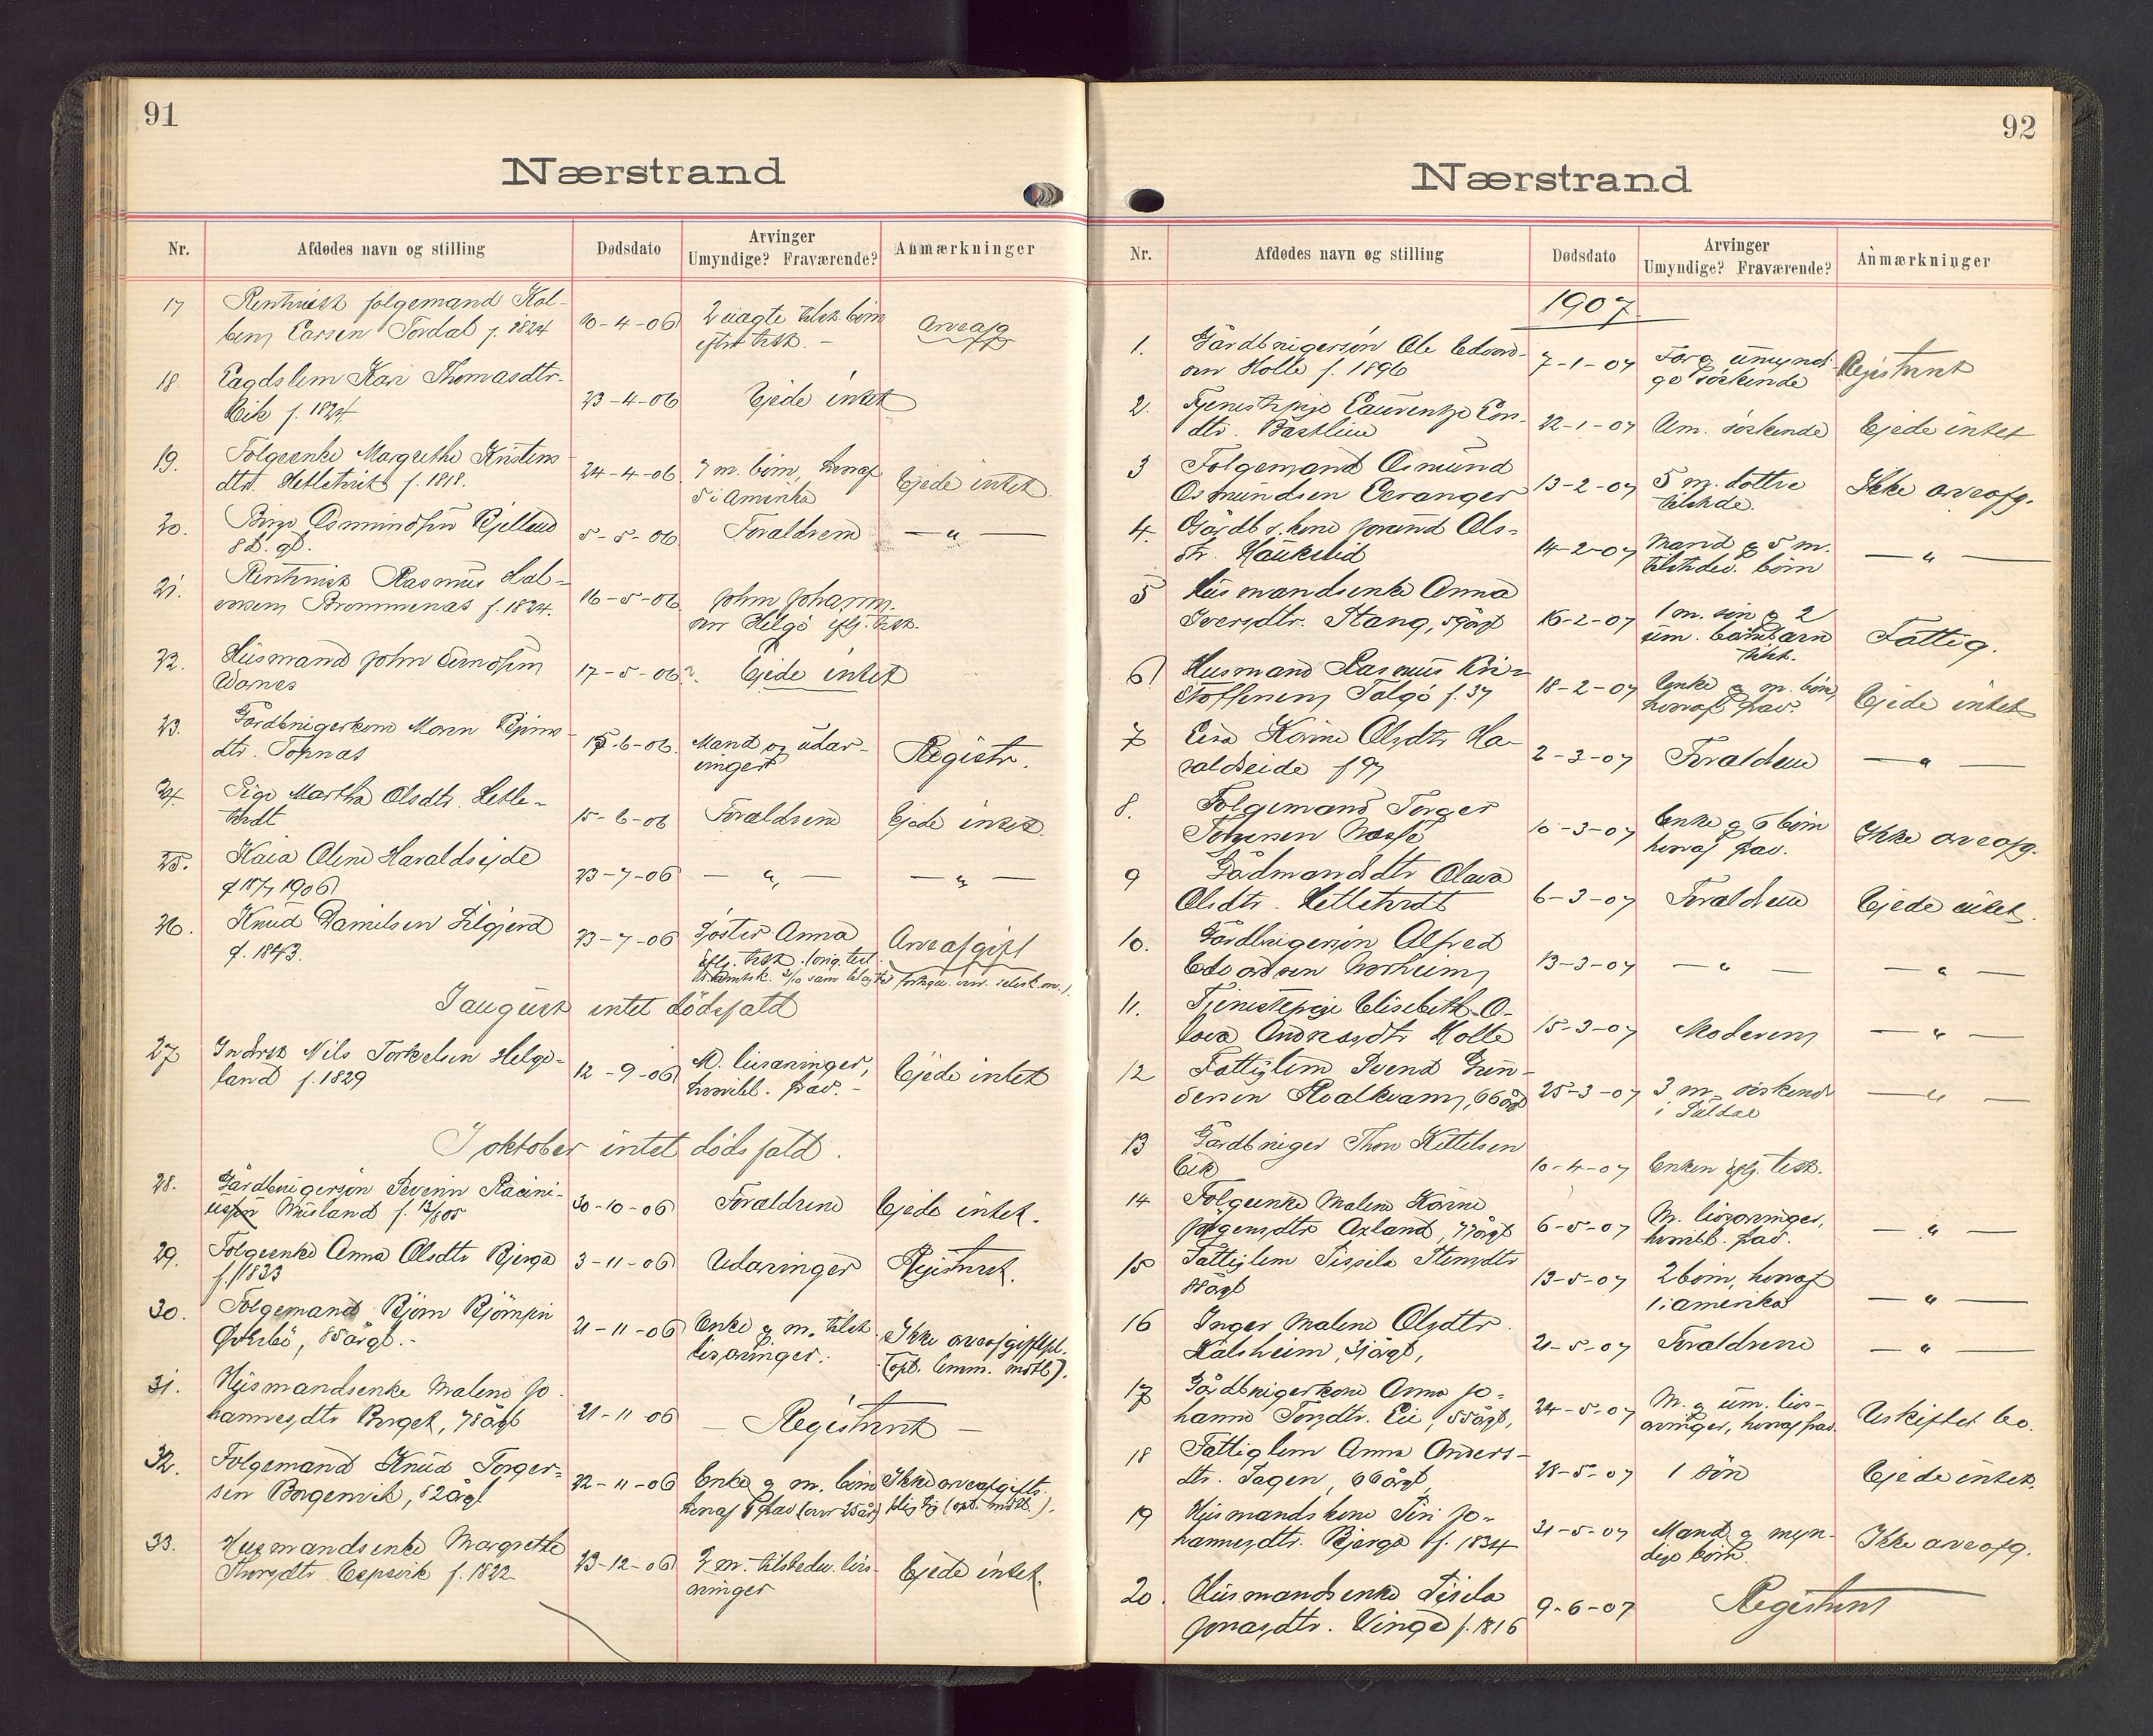 91
Nærstrand
Nr. Afdødes navn og stilling Dødsdato Arvinger Umyndige? Fraværende? Anmærkninger
17 folgemand Kol-
Larsen Tordal f. 1824 20-4-06 2 tilst. børn
Arveafg
18. Lagdslem Kari Thomasdtr.
Eik f. 1824 23-4-06 Ejede intet
19. Folgeenke Margrethe Kristens
dtr. Hetletveit f. 1818. 24-4-06 7 m. børn, heraf
5 i Amerika Ejede intet.
20. Osmundsen Bjelland
8 d. gl. 5-5-06 Forældrene — " —
21. Rasmus Hal-
vorsen Brommenæs f. 1824. 16-5-06 John Johann-
sen Helgö iflg. test.
22. Husmand John
17-5-06? Ejede intet
23. Gårdbrugerkone Maren Bjørns-
dtr. Tornæs 15-6-06. Mand og udar-
vinger Registr.
24. Pige Martha Olsdtr. Hetle-
tvedt 15-6-06 Forældrene Ejede intet.
25. Kaia Oline Haraldsejde
f 18/7 1906 23-7-06 — " — — " —
26. Knud Danielsen
f. 1843. 23-7-06 Søster Anna
iflg. test. Arveafgift
I august intet dödsfald
27 Inderst Nils Torkelsen Helge-
land f. 1829 12-9-06 M. livsarvinger,
hvoribl. frav. - Ejede intet
I oktober intet dödsfald.
28. Gårdbrugersön Severin Racini-
ussön Musland f. 13/8 05 30-10-06 Forældrene Ejede intet.
29. Folgeenke Anna Olsdtr. Bjerga
f. 1833 3-11-06 Udarvinger Registreret.
30. Folgemand Björn Björnsen
Östebö, 85 årgl.- 21-11-06 Enke og m. tilst.
livsarvinger. Ikke arveafgiftspl.
31. Husmandsenke Malene Jo-
hannesdtr. Berget, 78 årgl 21-11-06 — Registreret —
32. Folgemand Knud Torger-
sen Borgenvik, 52 årgl 22-11-06 Enke og m. börn Ikke arveafgifts-
heraf 1 frav (over 25 år) pligtig
33. Husmandsenke Margrethe
Thorsdtr. Espevik f. 1822 23-12-06 7 m. tilstedev. livs-
arvinger Ejede intet.
92
Nærstrand
Nr. Afdødes navn og stilling Dødsdato Arvinger Umyndige? Fraværende? Anmærkninger
1907
1. Gårdbrugersön Ole Edvard-
sen Holle f. 1896 7-1-07 Far og umyndi-
ge söskende Registreret
2. Tjenestepige Laurentze Lars-
dtr. Bästlein 22-1-07 Um. söskende Ejede intet
3 Folgemand Osmund
Osmundsen Leranger 13-2-07 5 m. döttre
tilstede. Ikke arveafg.
4. Gårdb.s kone Jorund Ols-
dtr. Haukelid 14-2-07 Mand og 5 m.
tilstedev. börn — " —
5 Husmandsenke Anna
Iversdtr. Stang, 59 årgl 16-2-07 1 m. sön og 2
um. barnebarn
tilst. Fattig.
6 Husmand Rasmus Kri-
stoffersen Talgö f. 37 18-2-07 Enke og m. börn
hvoraf frav. Ejede intet
7 Lisa Karine Olsdtr. Ha-
raldseide f 97 2-3-07 Forældrene — " —
8. Folgemand Torger
Torgersen Næsse 10-3-07 Enke og 6 börn
hvoraf frav. Ikke arveafg.
9 Gårdmandsdtr Olava
Olsdtr. Hetletvedt 6-3-07 Forældrene Ejede intet.
10. Gårdbrugersön Alfred
Edvardsen Norheim 13-3-07 — " — — " —
11. Tjenestepige Elisabeth O-
lava Andreasdtr. Holle 15-3-07 Moderen — " —
12 Fattiglem Svend Gun-
dersen Hvalkvam, 66 årgl 25-3-07 3 m. söskende
i Suldal — " —
13 Gårdbruger Thor Kittelsen
Eik 10-4-07 Enken iflg. test.
14 Folgeenke Malene Karine
Jørgensdtr. Axland, 77 årgl 6-5-07 M. livsarvinger,
hvoribl. frav. — " —
15 Fattiglem Sissela Stensdtr
88 årgl 13-5-07 2 börn, hvoraf
1 i amerika — " —
16 Inger Malene Olsdtr.
Kalsheim, 31 årgl, 21-5-07 Forældrene — " —
17 Gårdbrugerkone Anna Jo-
hanne Torsdtr. Lie, 55 årgl, 24-5-07 M. og um. livs-
arvinger, hvoraf frav. Uskiftet bo.
18 Fattiglem Anna Anders-
dtr. Tagen, 66 årgl 28-5-07 1 sön Ejede intet.
19 Husmandskone Siri Jo-
hannesdtr. Bjerga f. 1834 31-5-07 Mand og myn-
dige börn. Ikke arveafg.
20 Husmandsenke Sisela
Jonasdtr. Vinge f. 1816 9-6-07 Registreret